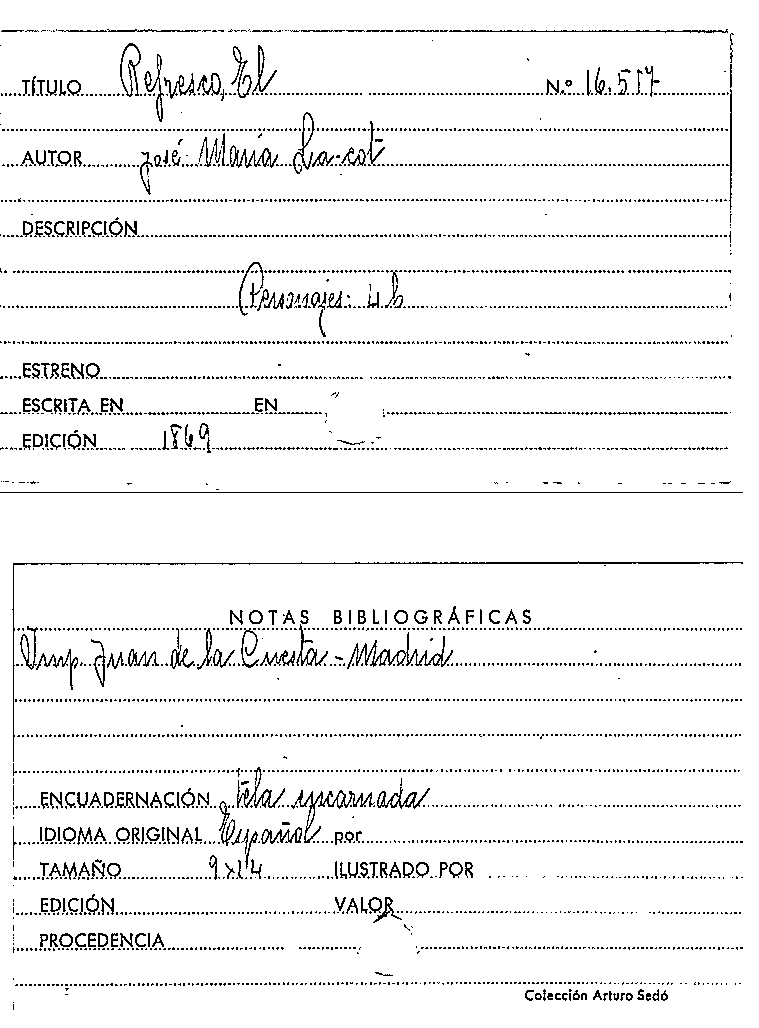 TÍTULO Refresco, El N.º 16.517
AUTOR José María La-cot
DESCRIPCIÓN
Personajes: 4 h
ESTRENO
ESCRITA EN EN
EDICIÓN 1869
NOTAS BIBLIOGRÁFICAS
Imp. Juan de la Cuesta - Madrid
ENCUADERNACIÓN tela encarnada
IDIOMA ORIGINAL Español por
TAMAÑO 9x14 ILUSTRADO POR
EDICIÓN VALOR
PROCEDENCIA
Colección Arturo Sedó